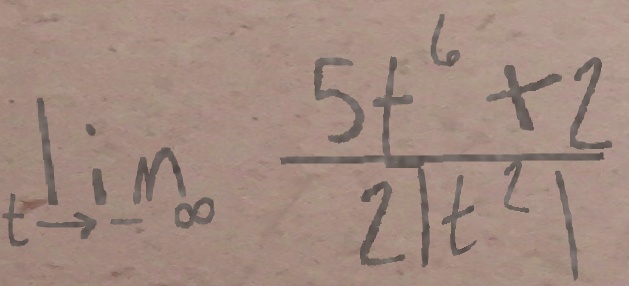 lim t→-∞ (5t^6 + 2)/(2|t^2|)